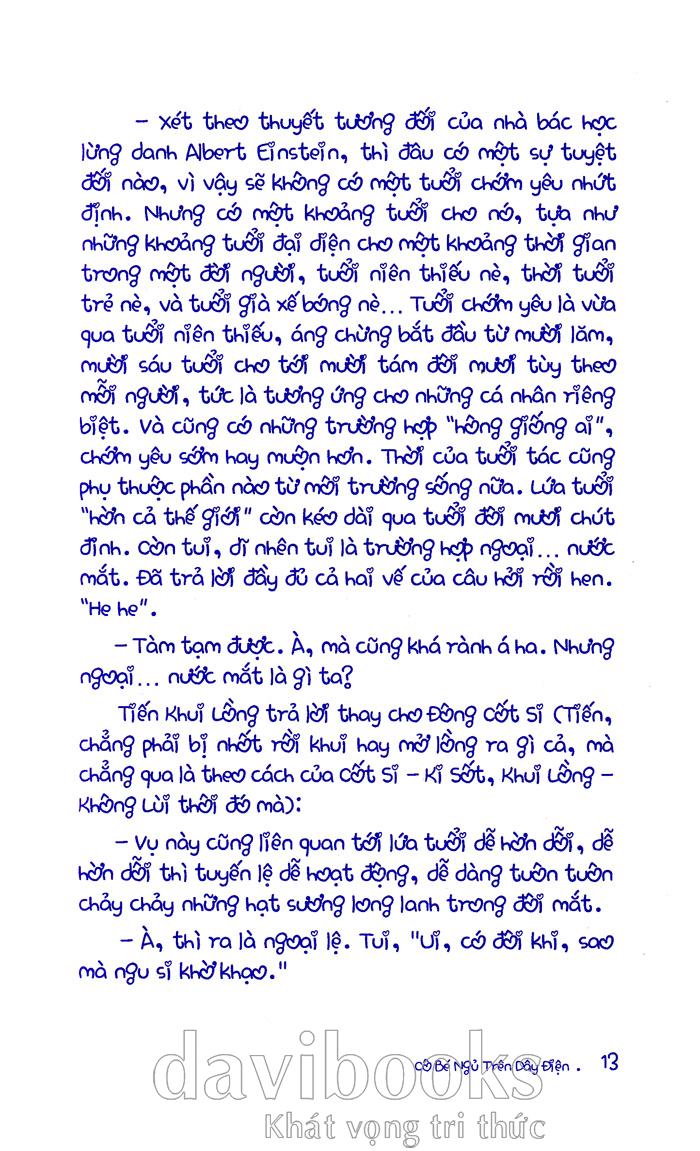 – Xét theo thuyết tương đối của nhà bác học
lừng danh Albert Einstein, thì đâu có một sự tuyệt
đối nào, vì vậy sẽ không có một tuổi chớm yêu nhứt
định. Nhưng có một khoảng tuổi cho nó, tựa như
những khoảng tuổi đại diện cho một khoảng thời gian
trong một đời người, tuổi niên thiếu nè, thời tuổi
trẻ nè, và tuổi già xế bóng nè... Tuổi chớm yêu là vừa
qua tuổi niên thiếu, áng chừng bắt đầu từ mười lăm,
mười sáu tuổi cho tới mười tám đôi mươi tùy theo
mỗi người, tức là tương ứng cho những cá nhân riêng
biệt. Và cũng có những trường hợp "hông giống ai",
chớm yêu sớm hay muộn hơn. Thời của tuổi tác cũng
phụ thuộc phần nào từ môi trường sống nữa. Lứa tuổi
"hờn cả thế giới" còn kéo dài qua tuổi đôi mươi chút
đỉnh. Còn tui, dĩ nhiên tui là trường hợp ngoại... nước
mắt. Đã trả lời đầy đủ cả hai vế của câu hỏi rồi hen.
"He he".
– Tàm tạm được. À, mà cũng khá rành á ha. Nhưng
ngoại... nước mắt là gì ta?
Tiến Khui Lồng trả lời thay cho Đông Cốt Si (Tiến,
chẳng phải bị nhốt rồi khui hay mở lồng ra gì cả, mà
chẳng qua là theo cách của Cốt Si – Kí Sốt, Khui Lồng –
Không Lùi thôi đó mà):
– Vụ này cũng liên quan tới lứa tuổi dễ hờn dỗi, dễ
hờn dỗi thì tuyến lệ dễ hoạt động, dễ dàng tuôn tuôn
chảy chảy những hạt sương long lanh trong đôi mắt.
– À, thì ra là ngoại lệ. Tui, "Ui, có đôi khi, sao
mà ngu si khờ khạo."
Cô Bé Ngủ Trên Dây Điện . 13
davibooks
Khát vọng tri thức